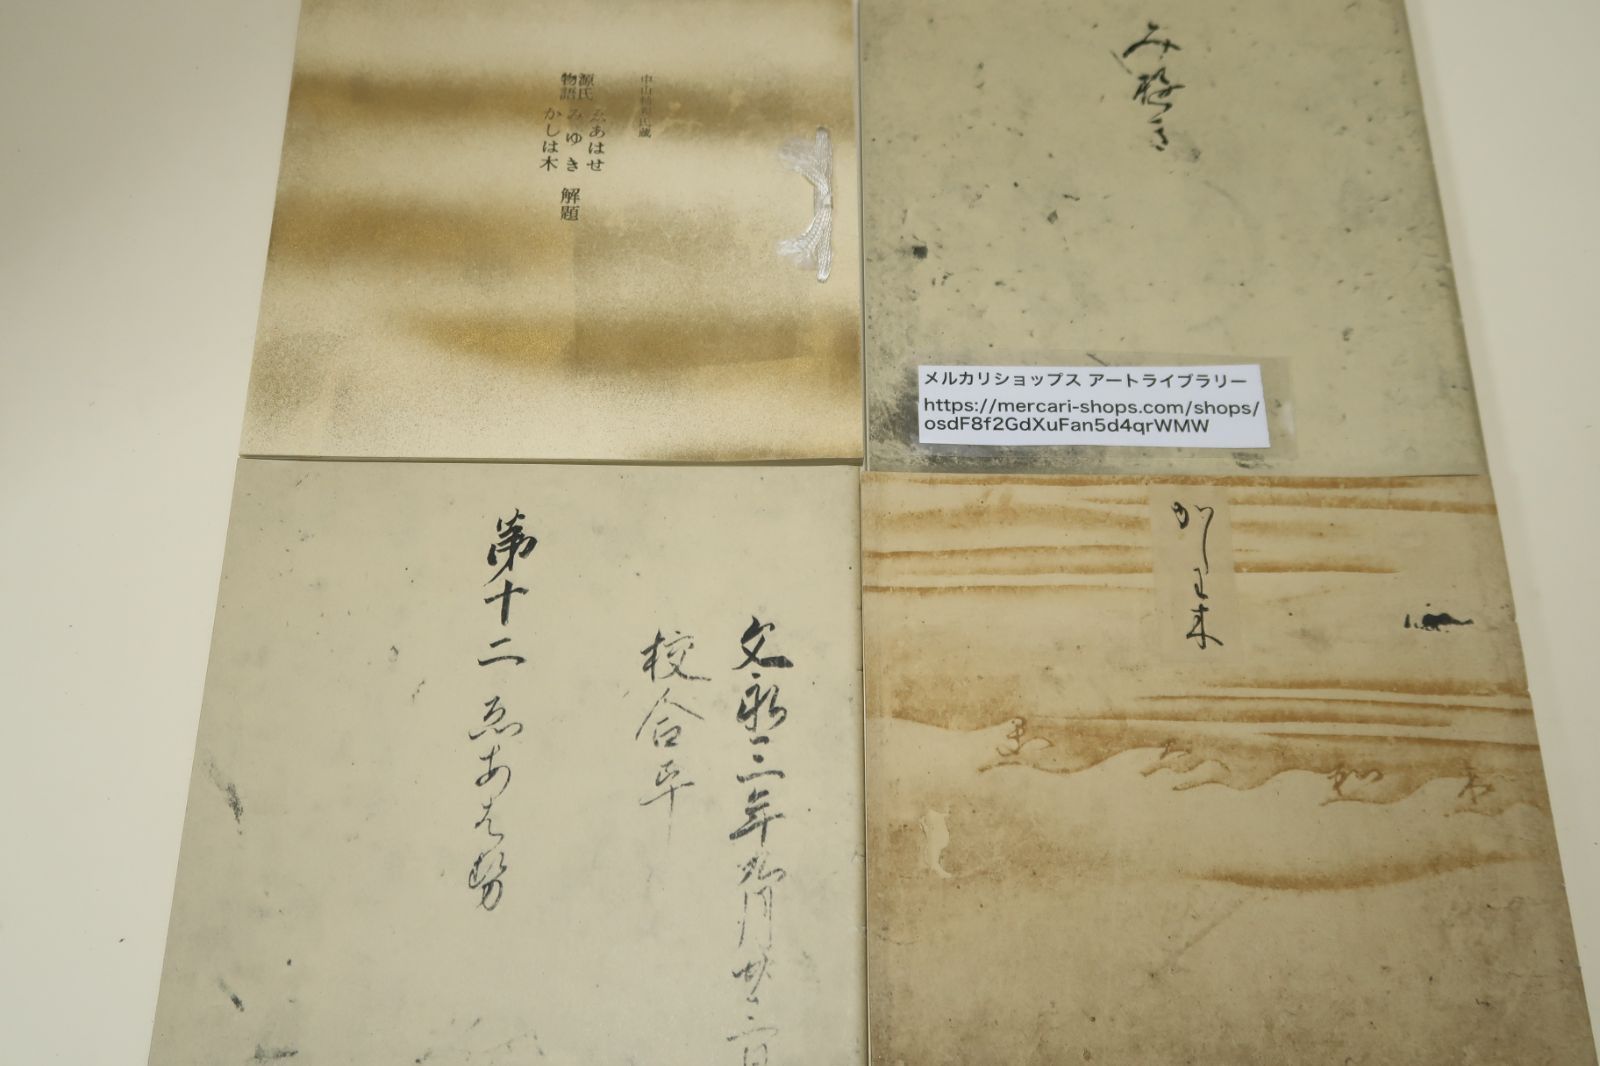 中山輔親氏蔵
源氏
物語
ゑあはせ
みゆき
かしは木
解題
み
き
メルカリショップス アートライブラリー
https://mercari-shops.com/shops/
osdF8f2GdXuFan5d4qrWMW
文永三年
校合畢
第十二 ゑあはせ
かしは木